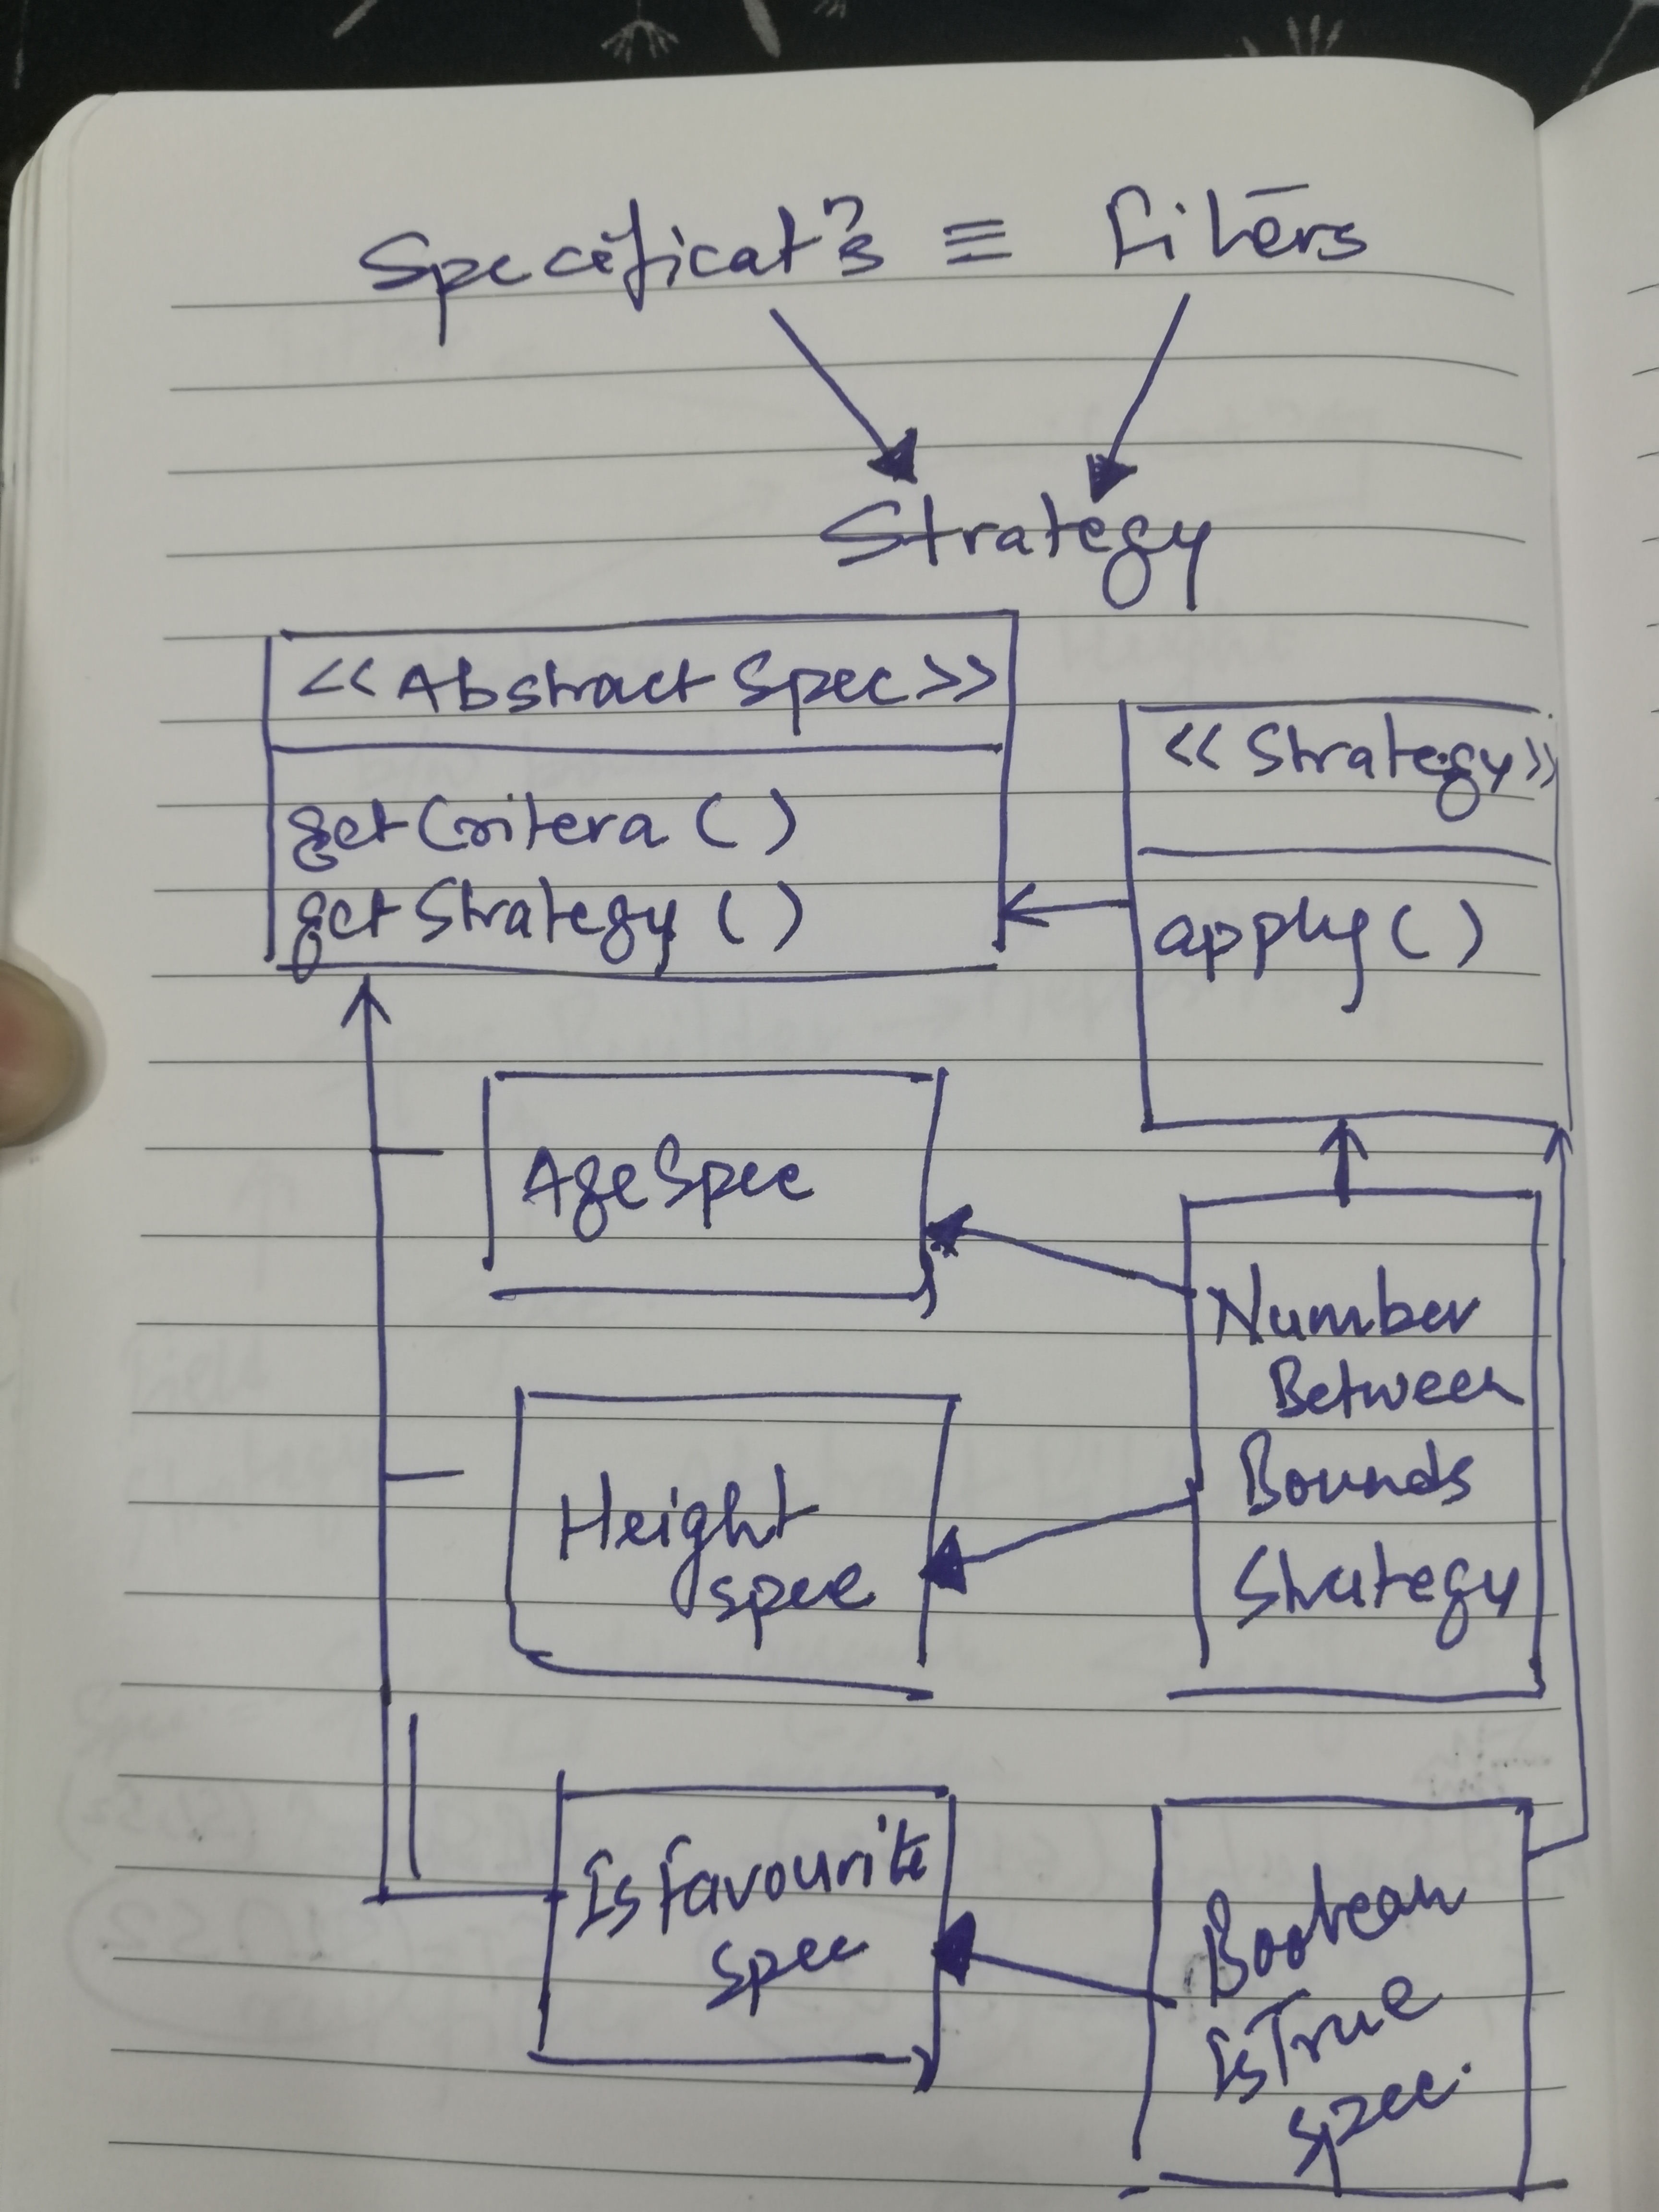 Specificatⁿs ≡ Filters
Strategy
<<Abstract Spec>>
getCritera ( )
getStrategy ( )
<< Strategy >>
apply ( )
AgeSpec
Number
Between
Bounds
Strategy
Height
spec
Is Favourite
spec
Boolean
IsTrue
spec.